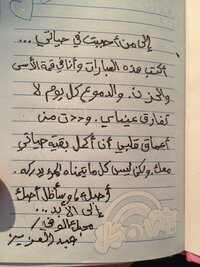 إلى من أحببت في حياتي ...
أكتب هذه العبارات وأنا في قمة الأسى
والحزن. والدموع كل يوم لا
تفارق عيناي. وددت من
أعماق قلبي أن أكمل بقية حياتي
معك. ولكن ليس كل ما يتمناه المرء يدركه.
أحبك، وسأظل أحبك
إلى الأبد ...
عبدالعزيز
LOVE